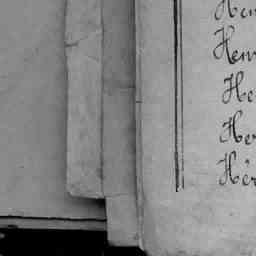 Hen
Hen
He
Her
Hér